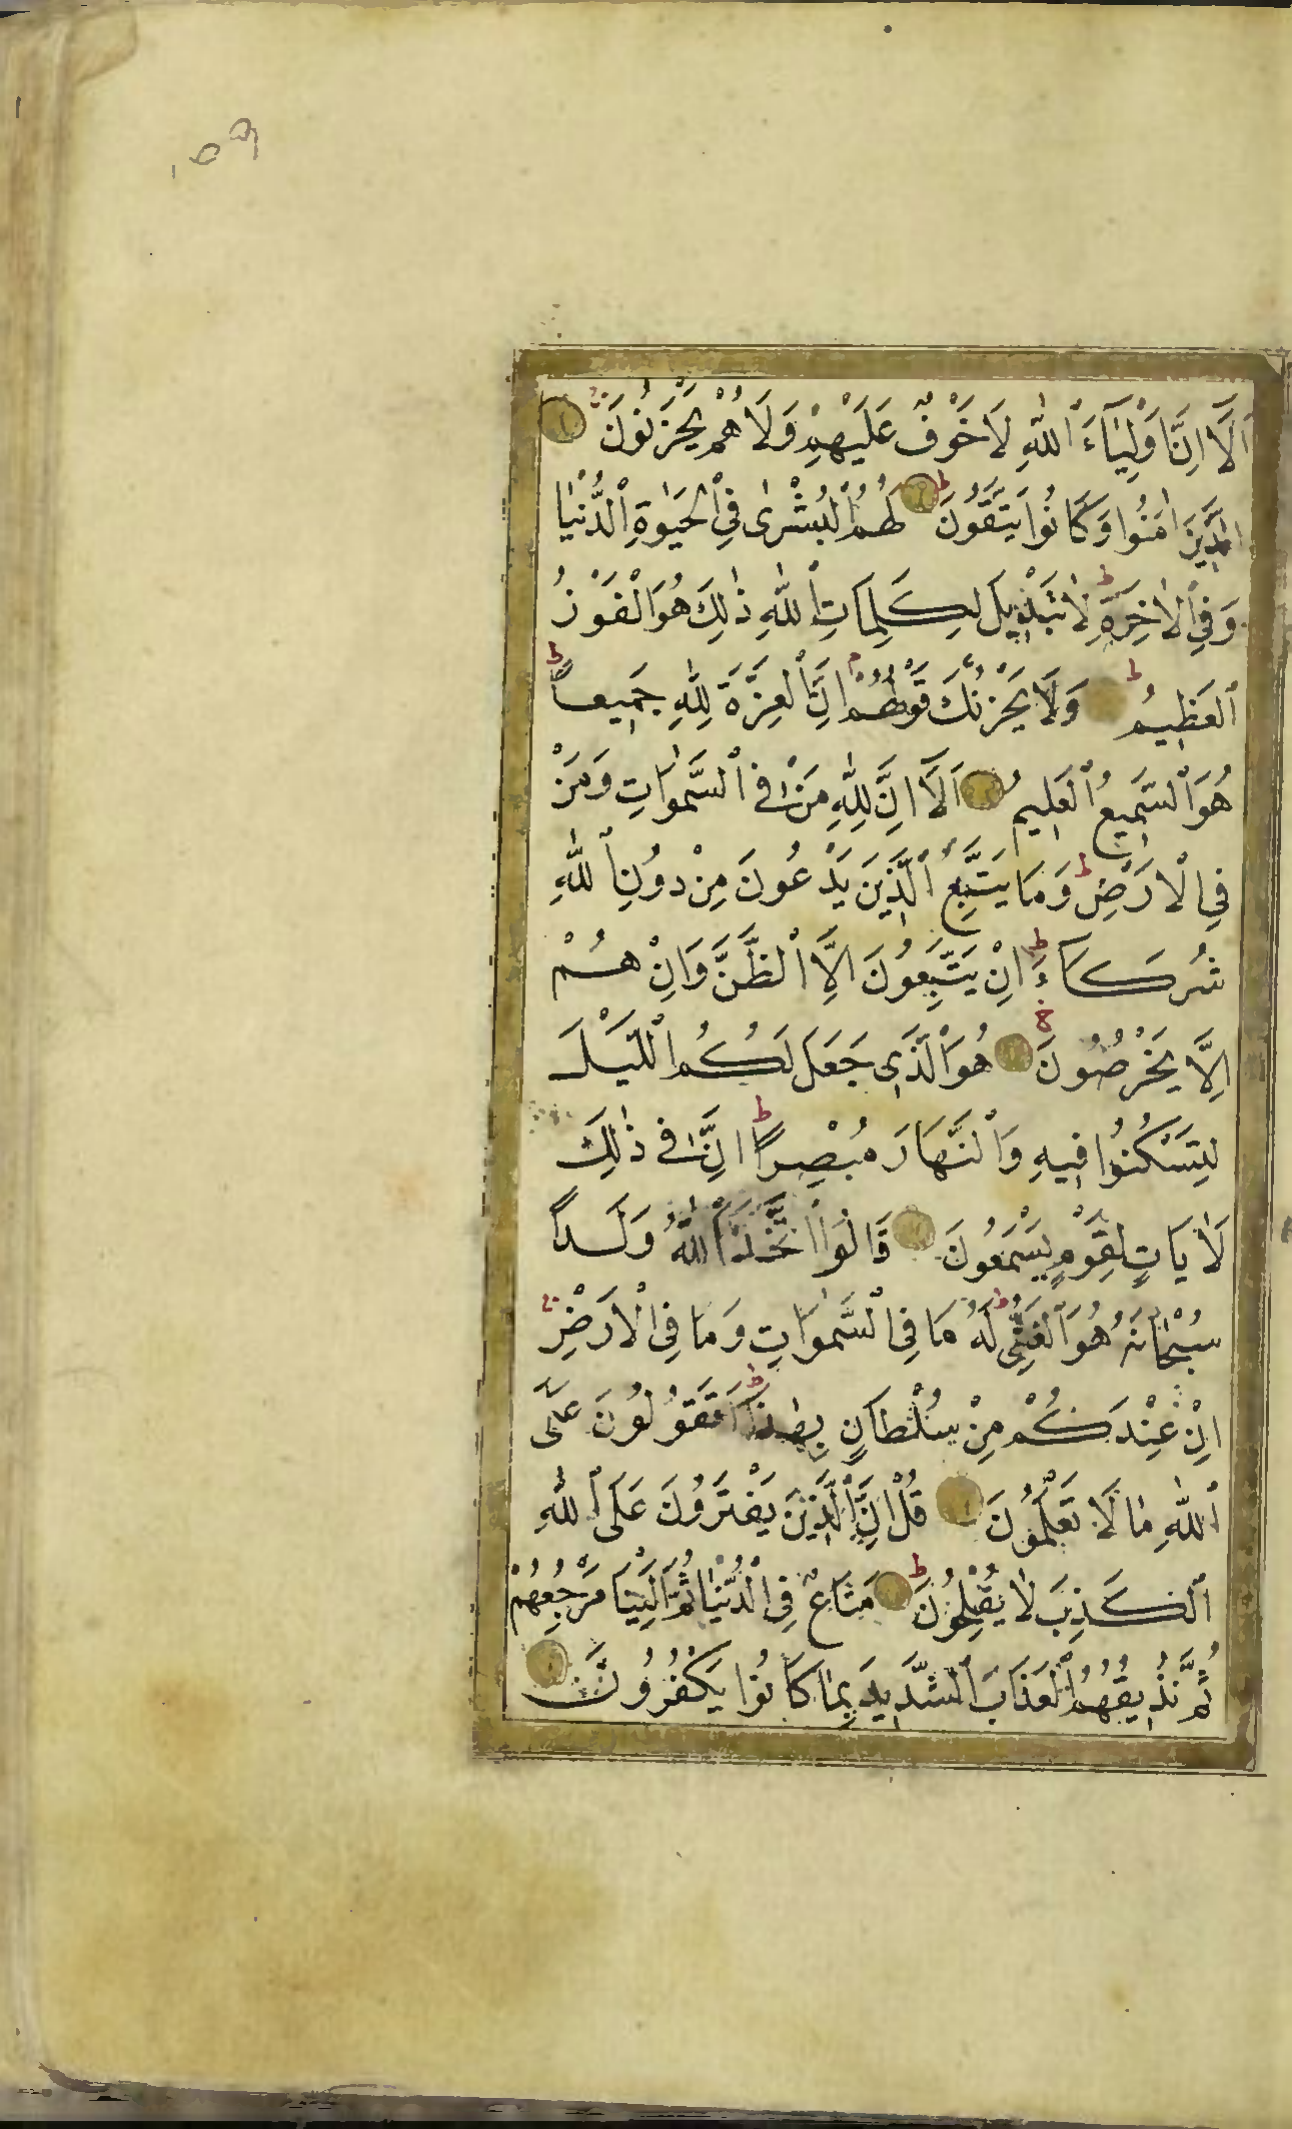 اَلَا اِنَّ اَوْلِيَاءَ ٱللّٰهِ لَا خَوْفٌ عَلَيْهِمْ وَلَا هُمْ يَحْزَنُونَ
اَلَّذِينَ اٰمَنُوا وَكَانُوا يَتَّقُونَ ط لَهُمُ ٱلْبُشْرٰى فِي ٱلْحَيٰوةِ ٱلدُّنْيَا
وَفِي ٱلْاٰخِرَةِ ط لَا تَبْدِيلَ لِكَلِمَاتِ ٱللّٰهِ ذٰلِكَ هُوَ ٱلْفَوْزُ
ٱلْعَظِيمُ ط وَلَا يَحْزُنْكَ قَوْلُهُمْ م اِنَّ ٱلْعِزَّةَ لِلّٰهِ جَمِيعاً ط
هُوَ ٱلسَّمِيعُ ٱلْعَلِيمُ اَلَا اِنَّ لِلّٰهِ مَنْ فِي ٱلسَّمٰوَاتِ وَمَنْ
فِي ٱلْاَرْضِ ط وَمَا يَتَّبِعُ ٱلَّذِينَ يَدْعُونَ مِنْ دُونِ ٱللّٰهِ
شُرَكَاءَ ط اِنْ يَتَّبِعُونَ اِلَّا ٱلظَّنَّ وَاِنْ هُمْ
اِلَّا يَخْرُصُونَ هُوَ ٱلَّذِي جَعَلَ لَكُمُ ٱللَّيْلَ
لِتَسْكُنُوا فِيهِ وَٱلنَّهَارَ مُبْصِراً ط اِنَّ فِي ذٰلِكَ
لَاٰيَاتٍ لِقَوْمٍ يَسْمَعُونَ قَالُوا ٱتَّخَذَ ٱللّٰهُ وَلَداً
سُبْحَانَهُ هُوَ ٱلْغَنِيُّ ط لَهُ مَا فِي ٱلسَّمٰوَاتِ وَمَا فِي ٱلْاَرْضِ
اِنْ عِنْدَكُمْ مِنْ سُلْطَانٍ بِهٰذَا ط اَتَقُولُونَ عَلَى
ٱللّٰهِ مَا لَا تَعْلَمُونَ قُلْ اِنَّ ٱلَّذِينَ يَفْتَرُونَ عَلَى ٱللّٰهِ
ٱلْكَذِبَ لَا يُفْلِحُونَ ط مَتَاعٌ فِي ٱلدُّنْيَا ثُمَّ اِلَيْنَا مَرْجِعُهُمْ
ثُمَّ نُذِيقُهُمُ ٱلْعَذَابَ ٱلشَّدِيدَ بِمَا كَانُوا يَكْفُرُونَ